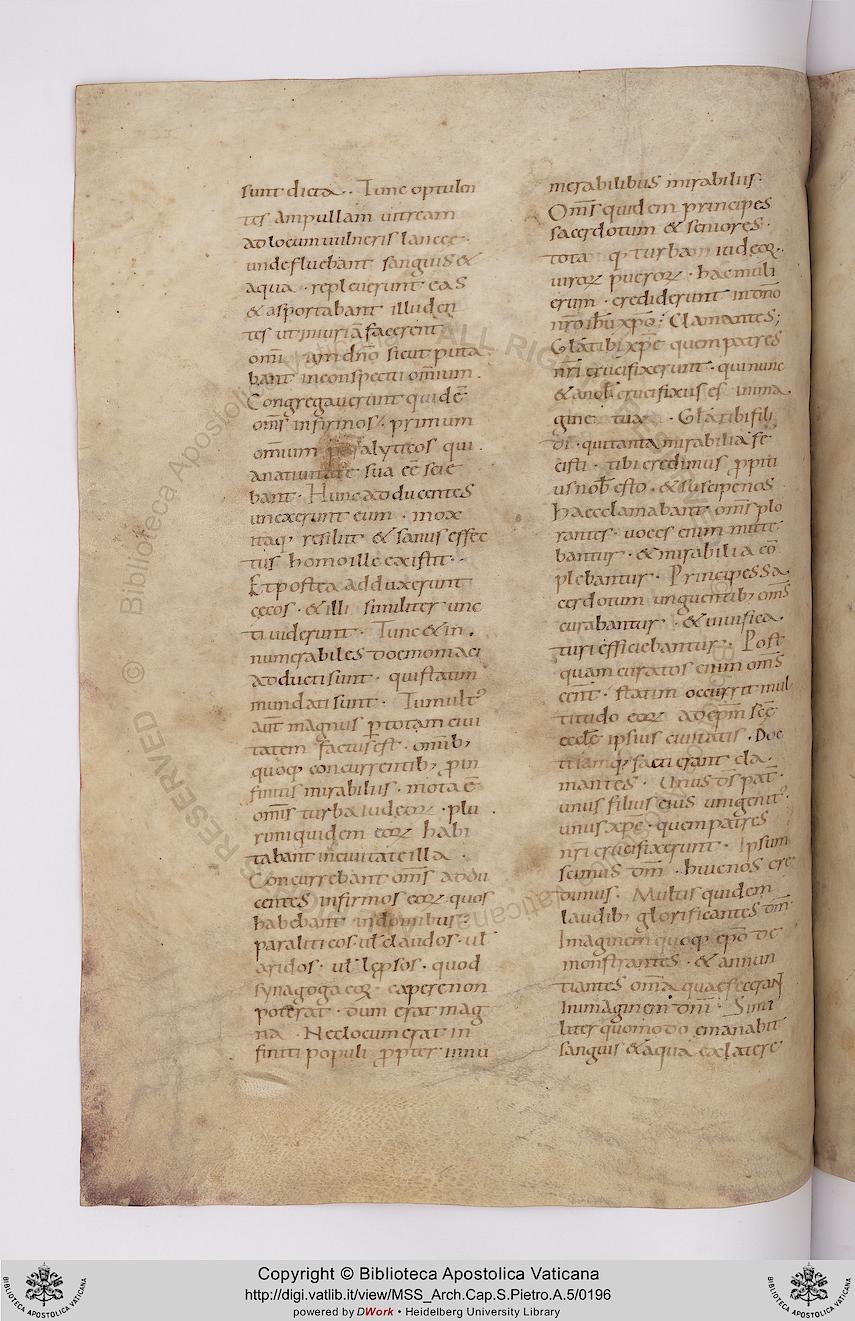 sunt dicta. Tunc optulen
tes ampullam uitream
ad locum uulneris lanceę.
unde fluebant sanguis &
aqua. repleuerunt eas
& asportabant illuden
tes ut iniuriā facerent
dn̄o sicut puta
bant inconspectu om̄ium.
Congregauerunt quidē
om̄s infirmos. primum
omnium paralyticos qui
anatiuitate sua eē scie
bant. Hunc adducentes
unexerunt eum. mox
itaq; resiliit & sanus effec
tus homo ille existit.
Et postea adduxerunt
cęcos. & illi similiter unc
ti uiderunt. Tunc & in
numerabiles doemoniaci
adducti sunt. qui statim
mundati sunt. Tumult᾽
aut̄ magnus ꝑ totam ciui
tatem factus est. omīb;
quoq; concurrentib; ꝓ in
finitis mirabiliis. mota ē
om̄s turba iudeoꝝ. plu
rimi quidem eoꝝ habi
tabant inciuitate illa.
Concurrebant om̄s addu
centes infirmos eoꝝ quos
habebant in domibus.
paraliticos. ul̄ claudos. ul̄
aridos. ul̄ lęp̄sos. quod
synagoga eoꝝ capere non
poterat. dum erat mag
na. Nec locum erat in
finiti populi ꝓpter innu
merabilibus mirabiliis.
Om̄s quidem principes
sacerdotum & seniores.
tota q; turba iudeoꝝ.
uiroꝝ pueroꝝ. hac muli
erum. crediderunt in dn̄o
nr̄o ihū xp̄o. Clamantes;
Gl̄a tibi xp̄e quem patres
nr̄i crucifixerunt. qui nunc
& a nob̄ crucifixus es in ima
gine tua. Gl̄a tibi fili
di. qui tanta mirabilia fe
cisti. tibi credimus ꝓpiti
us nob̄ esto. & suscipe nos
haec clamabant om̄s plo
rantes. uoces enim mitte
bantur. & mirabilia cō
plebantur. Principes sa
cerdotum unguentib; om̄s
curabantur. & uiuifica
turi efficiebantur. Post
quam curatos enim om̄s
statim occurrit mul
titudo eoꝝ ad ep̄m scē
eccl̄ę ipsius ciuitatis. Doc
ti iamq; facti erant cla
mantes. Unus ds̄ pat̄.
unus filius eius unigenit᾽.
unus xp̄e. quem patres
nr̄i crucifixerunt. Ipsum
scimus dm̄. huic nos cre
dimus. Multis quidem
laudib; glorificantes dm̄
Imaginem quoq; ep̄o de
monstrantes. & annun
tiantes om̄a quae fecerant
In imaginem dm̄. Simi
liter quomodo emanabit
sanguis & aqua ex latere
Copyright © Biblioteca Apostolica Vaticana
http://digi.vatlib.it/view/MSS_Arch.Cap.S.Pietro.A.5/0196
powered by DWork • Heidelberg University Library